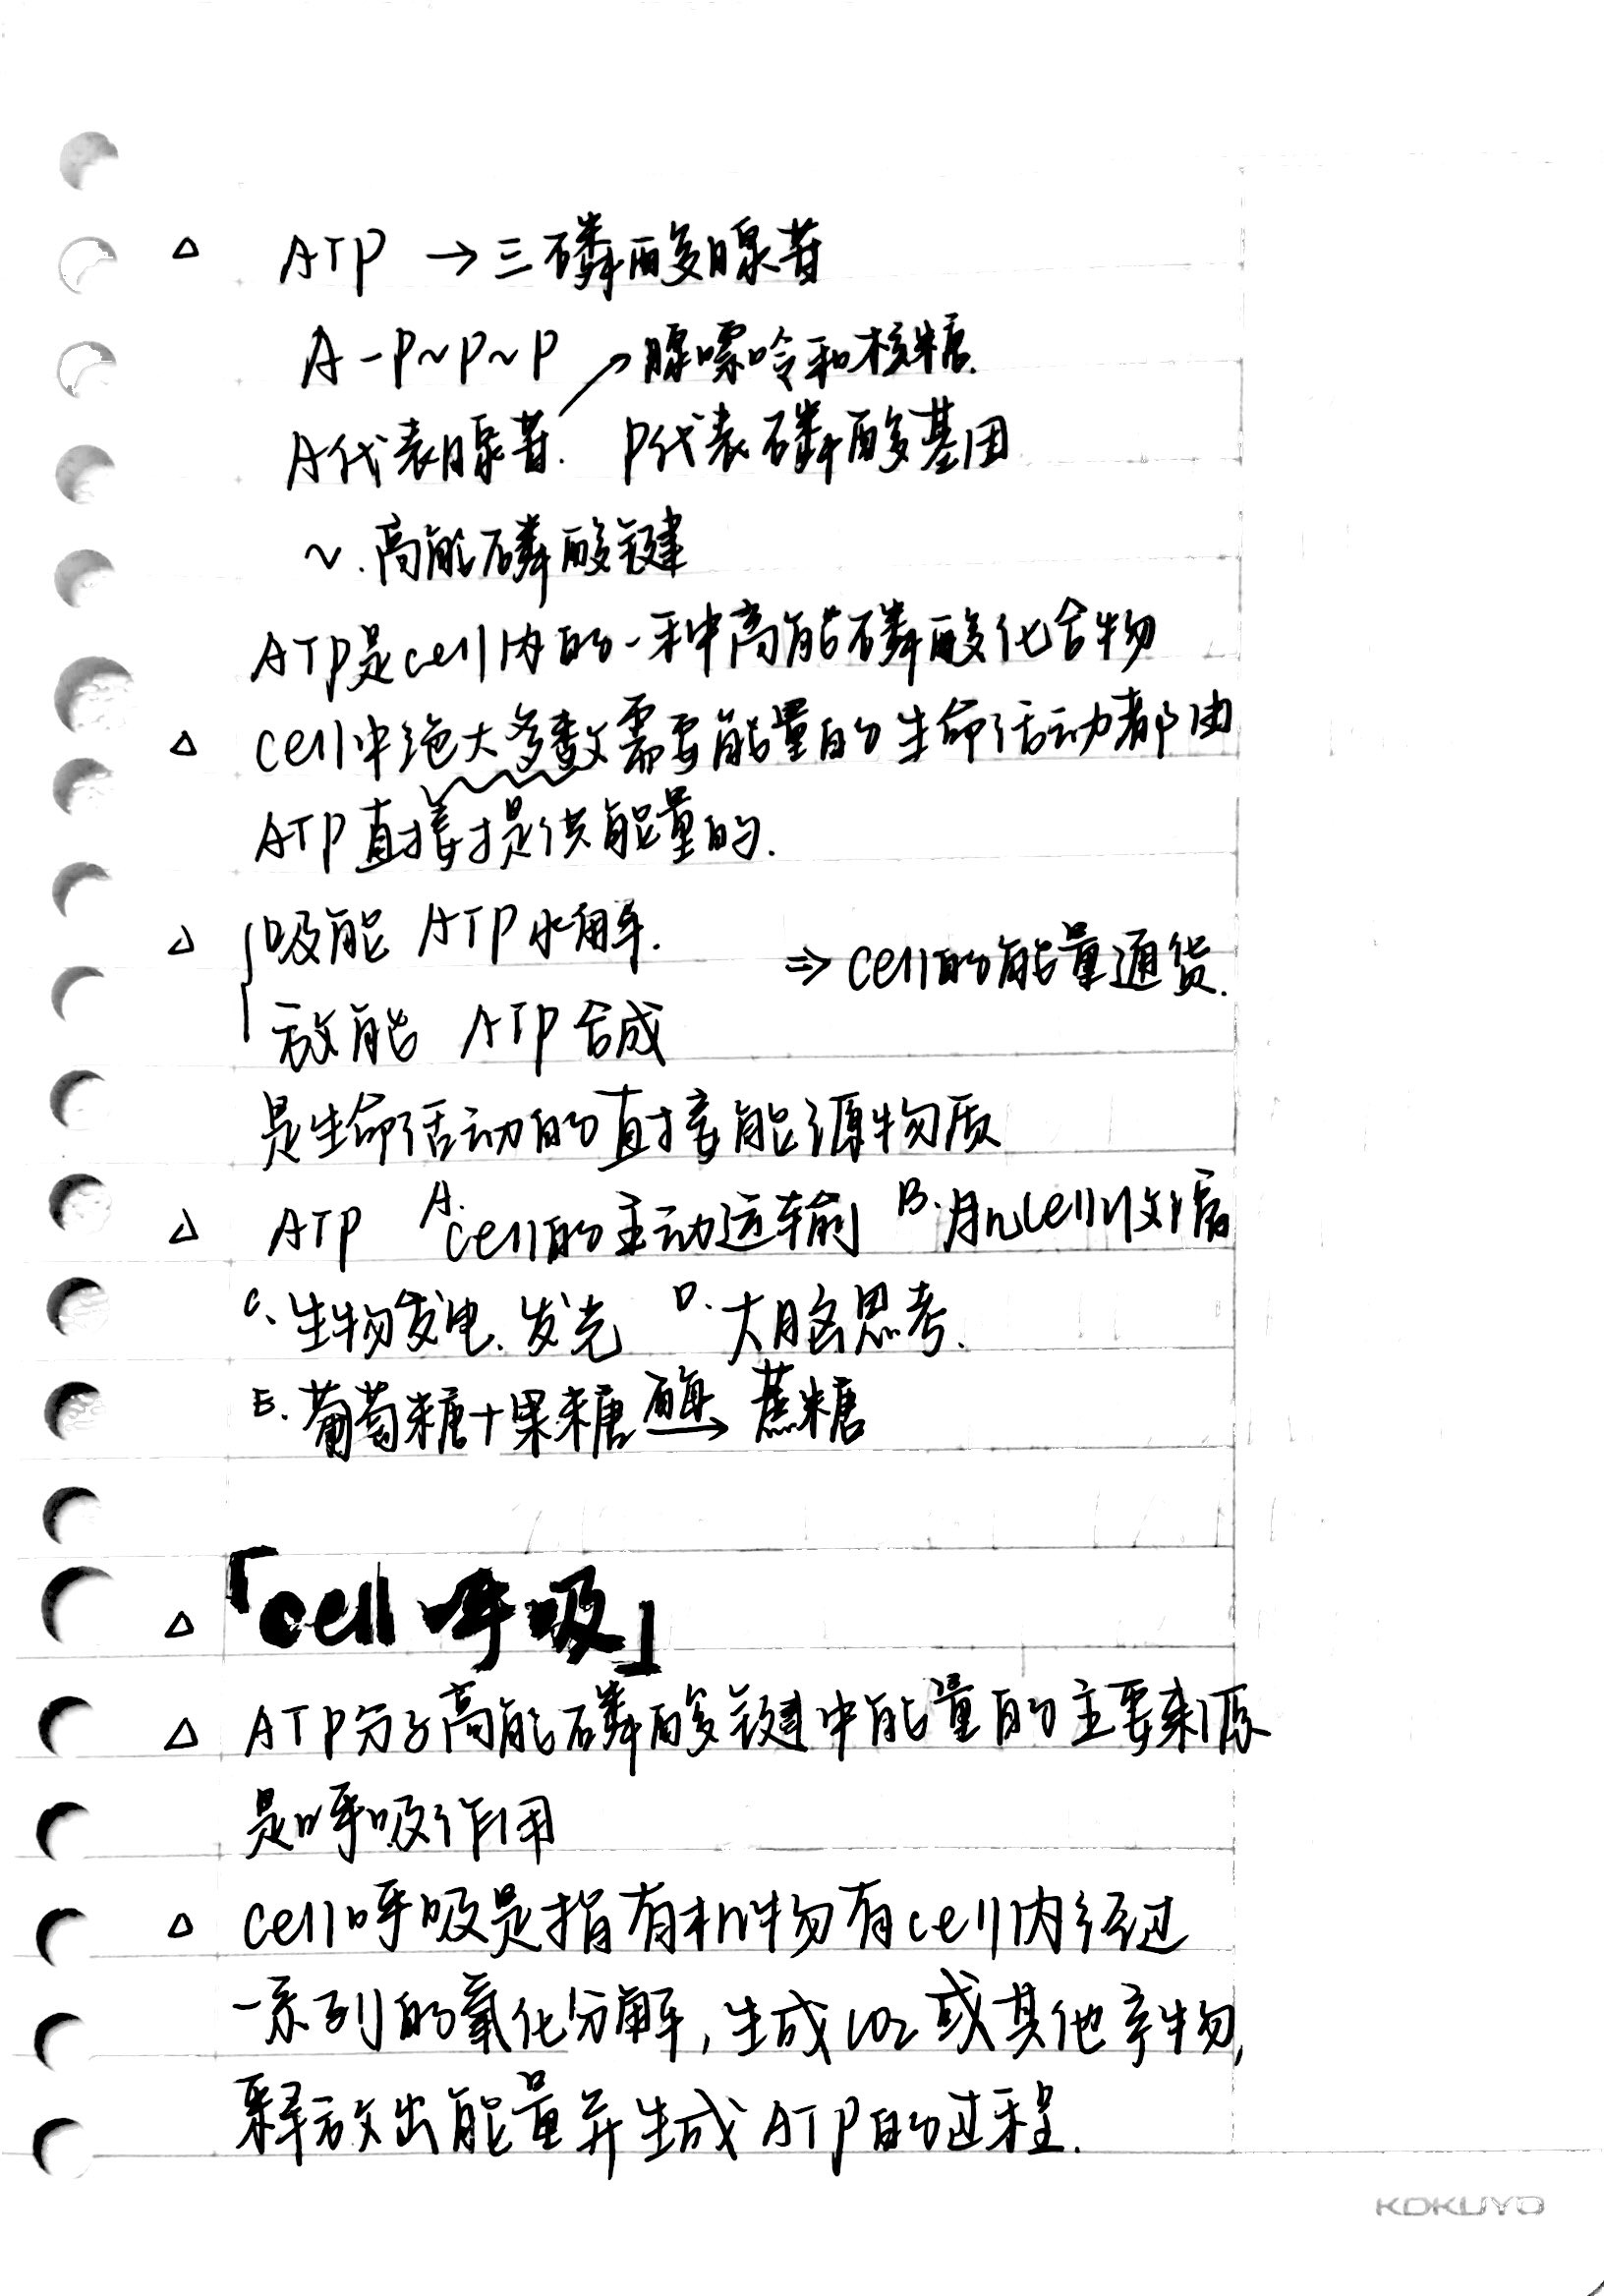 △ ATP → 三磷酸腺苷
A-P~P~P ↗腺嘌呤和核糖.
A代表腺苷. P代表磷酸基团
~.高能磷酸键
ATP是cell内的一种高能磷酸化合物
△ cell中绝大多数需要能量的生命活动都由
ATP直接提供能量的.
△ {吸能 ATP水解. ⇒ cell的能量通货.
放能 ATP合成
是生命活动的直接能源物质
△ ATP A.cell的主动运输 B.肌cell收缩
C、生物发电、发光 D.大脑思考.
E.葡萄糖+果糖 酶→ 蔗糖
△「cell呼吸」
△ ATP分子高能磷酸键中能量的主要来源
是呼吸作用
△ cell呼吸是指有机物有cell内经过
一系列的氧化分解,生成CO2或其他产物,
释放出能量并生成ATP的过程.
KOKUYO